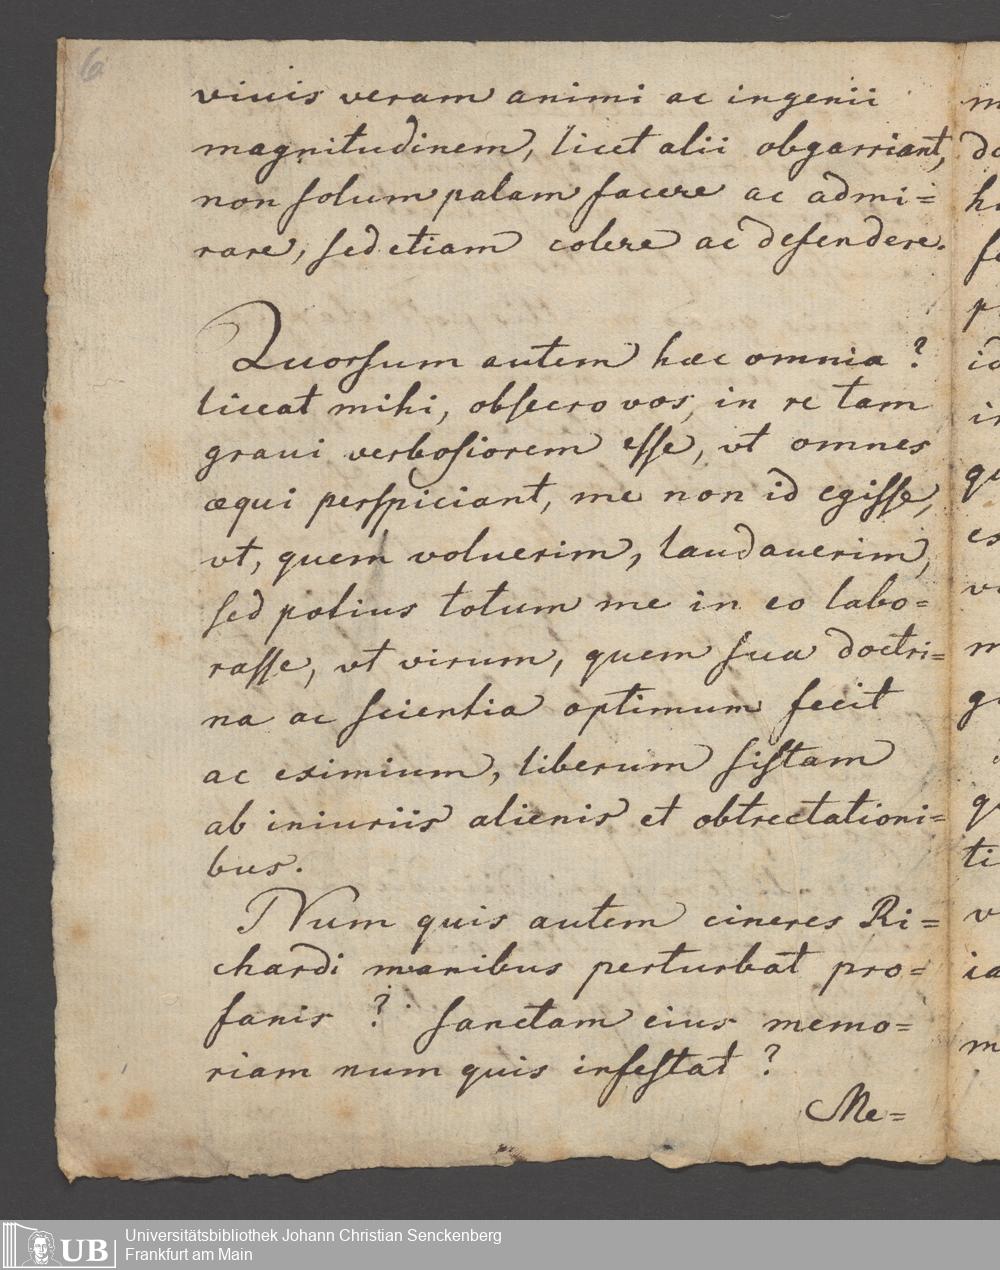 6
viuis veram animi ac ingenii
magnitudinem, licet alii obgarriant,
non ſolum palam facere ac admi=
rare, ſed etiam colere ac defendere.
Quorſum autem haec omnia?
liceat mihi, obſecro vos, in re tam
graui verboſiorem eſſe, vt omnes
aequi perſpiciant, me non id egiſſe,
vt, quem voluerim, laudauerim,
ſed potius totum me in eo labo=
raſſe, vt virum, quem ſua doctri=
na ac ſcientia optimum fecit
ac eximium, liberum ſiſtam
ab iniuriis alienis et obtrectationi=
bus.
Num quis autem cineres Ri=
chardi manibus perturbat pro=
fanis? ſanctam eius memo=
riam num quis infeſtat?
Me=
m
ho
p
id
in
qu
es
m
qu
ti
v
ia
m
UB
Universitätsbibliothek Johann Christian Senckenberg
Frankfurt am Main